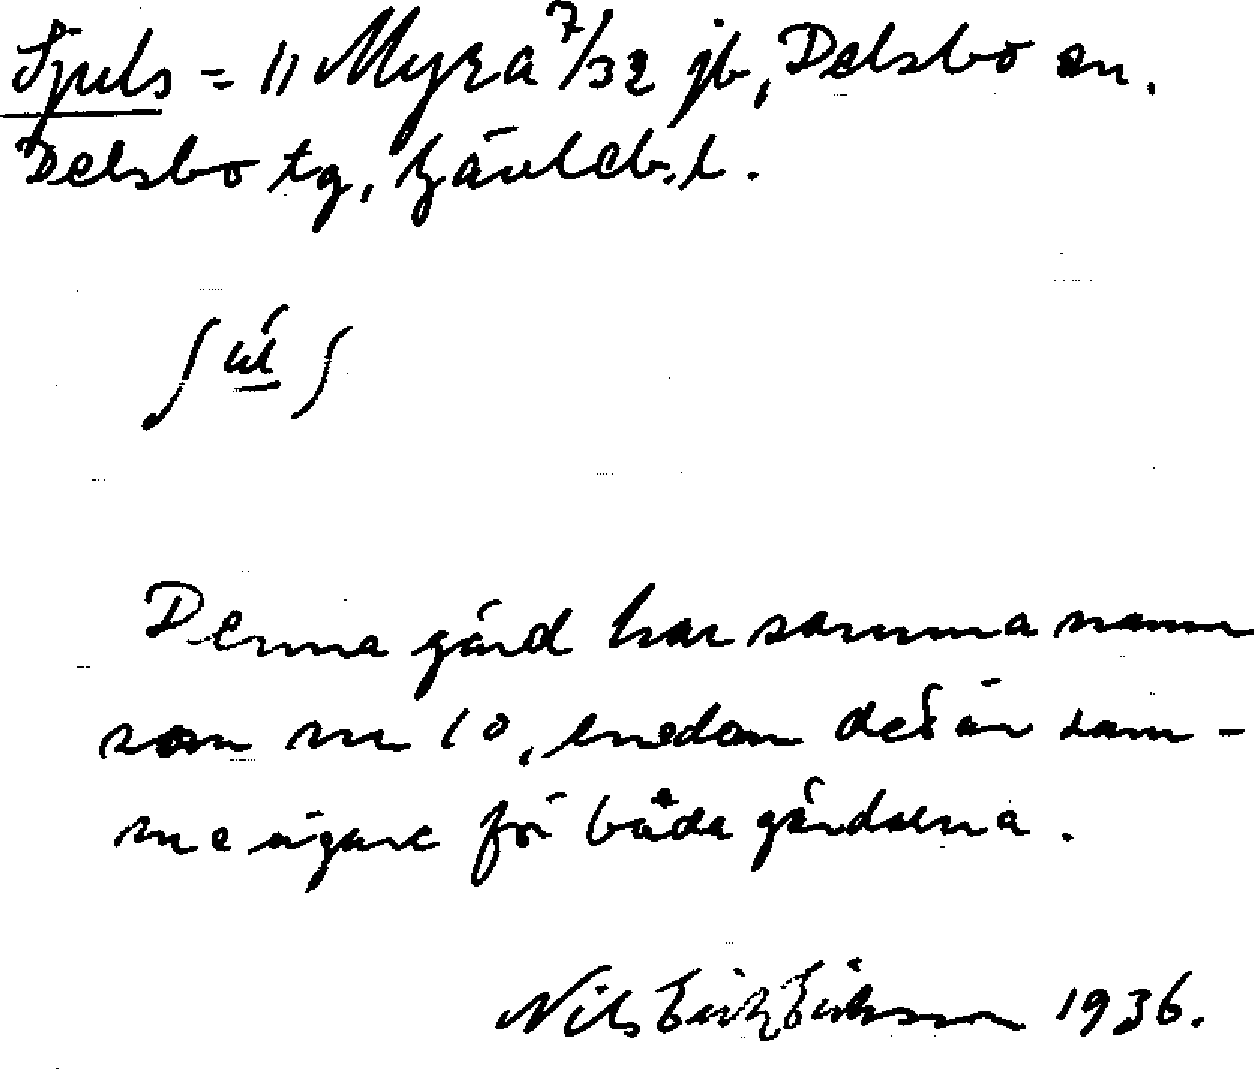 Spels = 11 Myra 7/32 jb, Delsbo sn.
Delsbo tg, Gävleb.l.
Denna gård har samma namn
som nr 10, enedan det är sam-
me ägare för båda gårdarna.
Nils Erik Eriksson 1936.